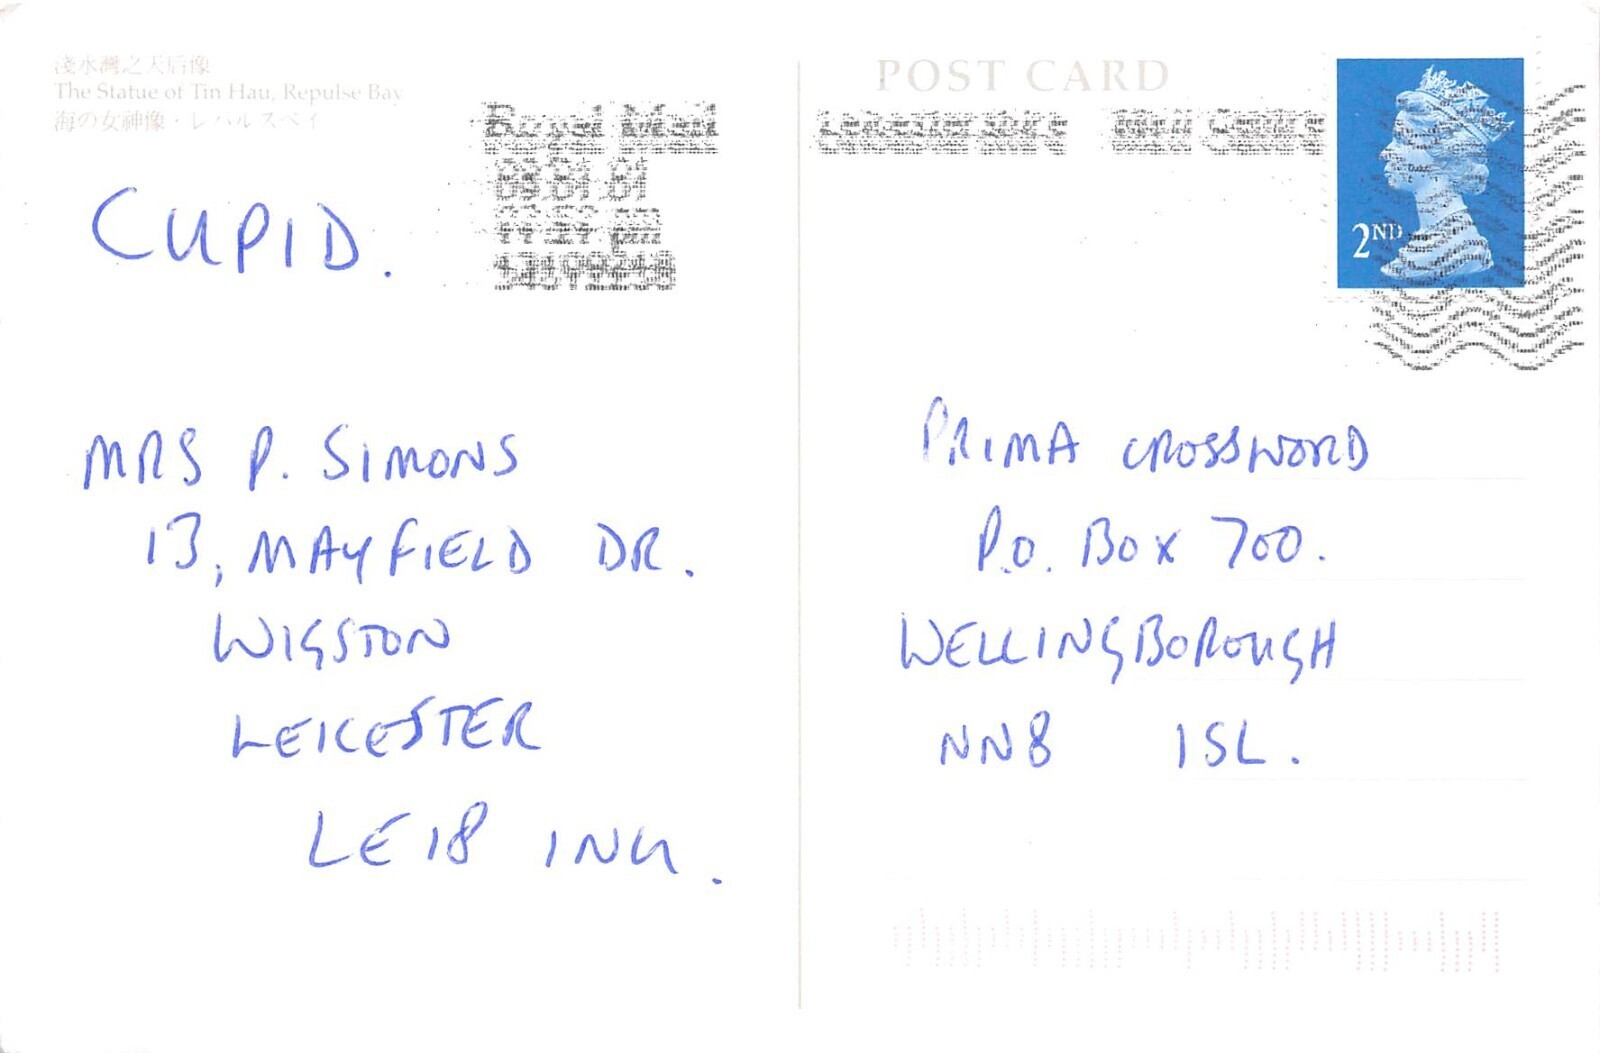 淺水灣之天后像
The Statue of Tin Hau, Repulse Bay
海の女神像・レパルスベイ
Royal Mail
CUPID.
MRS P. SIMONS
13, MAYFIELD DR.
WIGSTON
LEICESTER
LE18 1NU.
POST CARD
2ND
PRIMA CROSSWORD
P.O. BOX 700.
WELLINGBOROUGH
NN8 1SL.